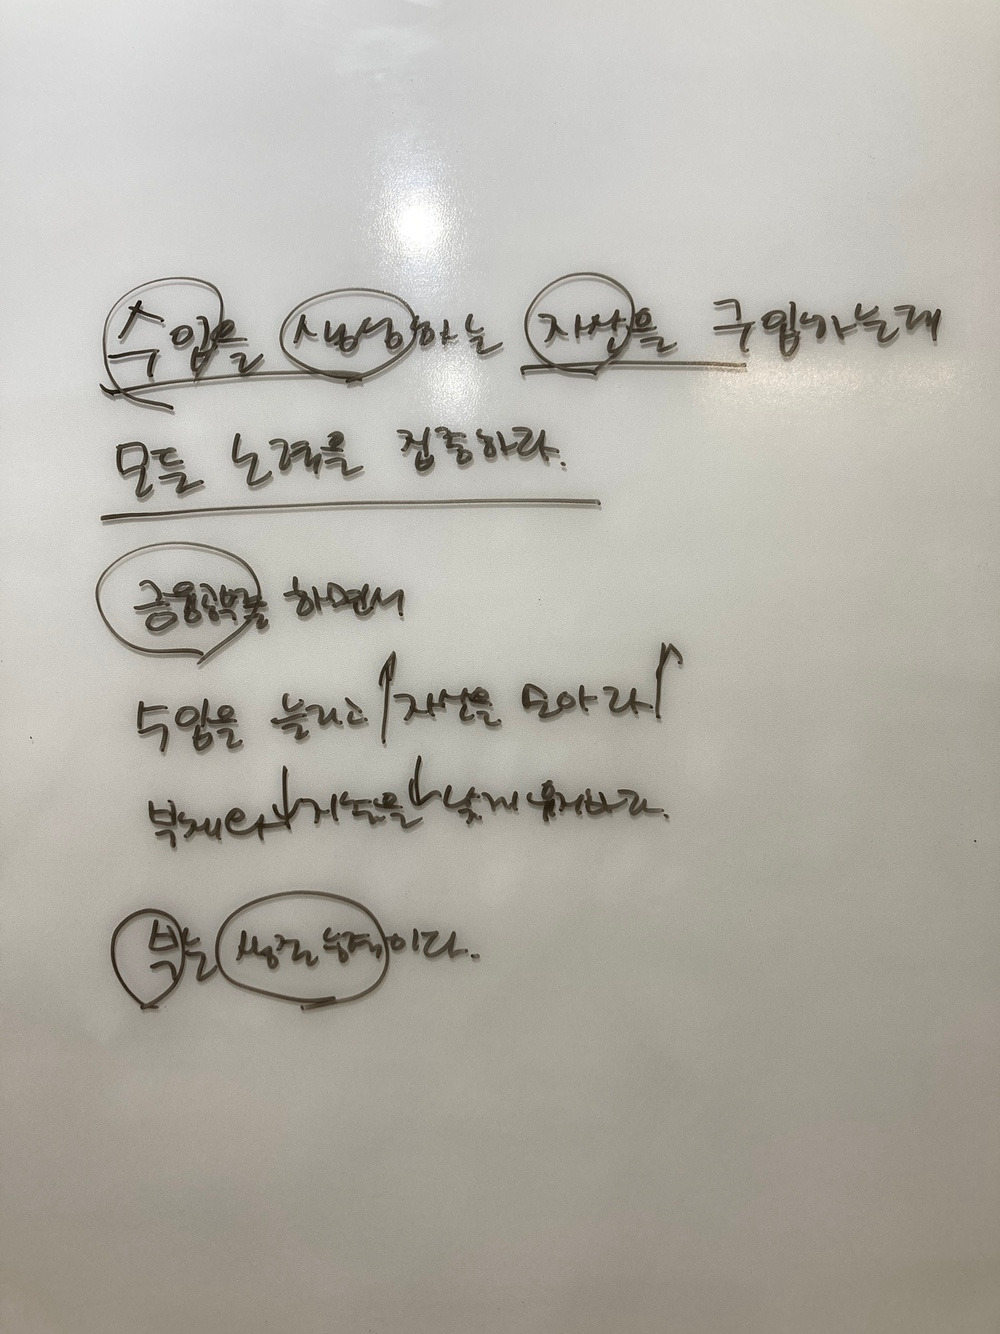 수입을 생성하는 자산을 구입하는데
모든 노력을 집중하라.
금융공부를 하면서
수입을 늘리고 자산을 모아라
부채와 지출을 낮게 유지하라.
부는 생존능력이다.